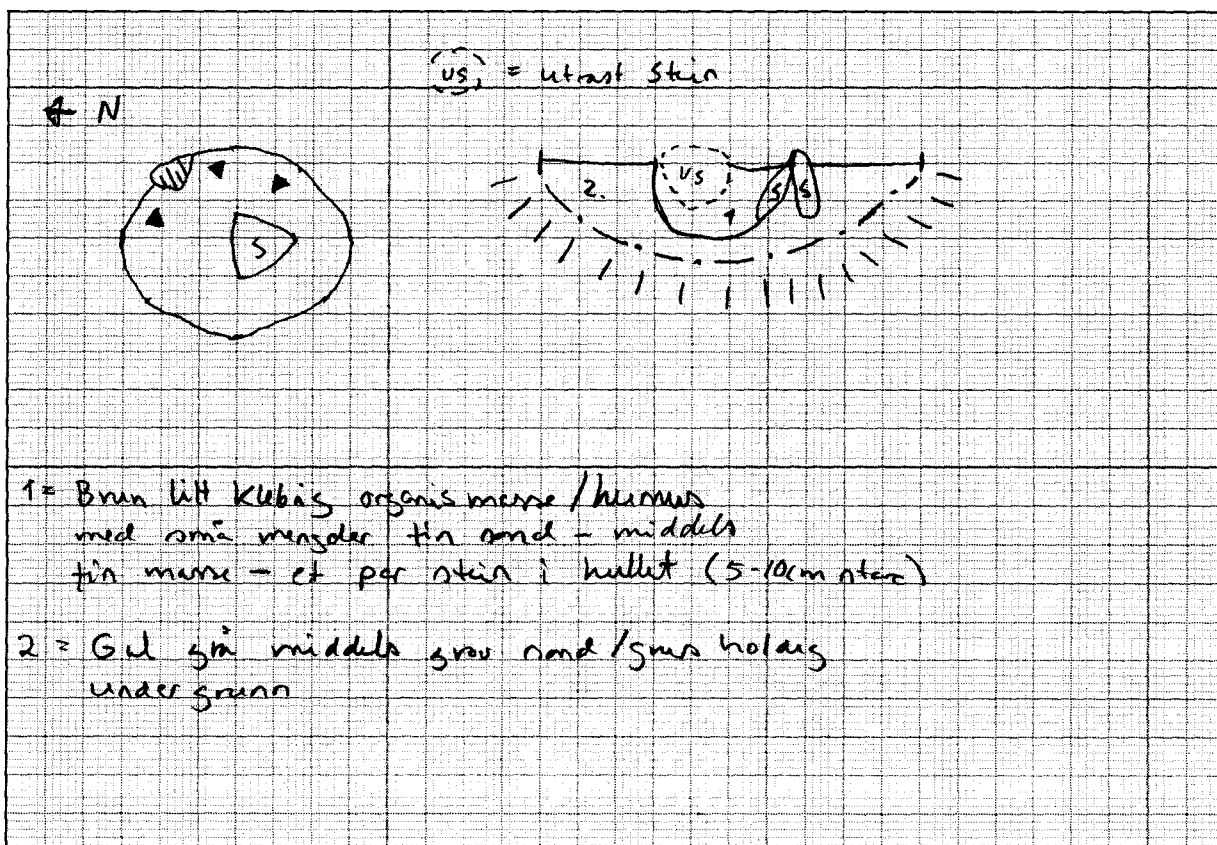 us = utrast Stein
← N
S
us
2.
1
S
S
1 = Brun litt klebrig organis masse/humus
med små mengder fin sand - middels
fin masse - et par stein i hullet (5-10cm
2 = Gul grå middels grov sand/grus holdig
undergrunn